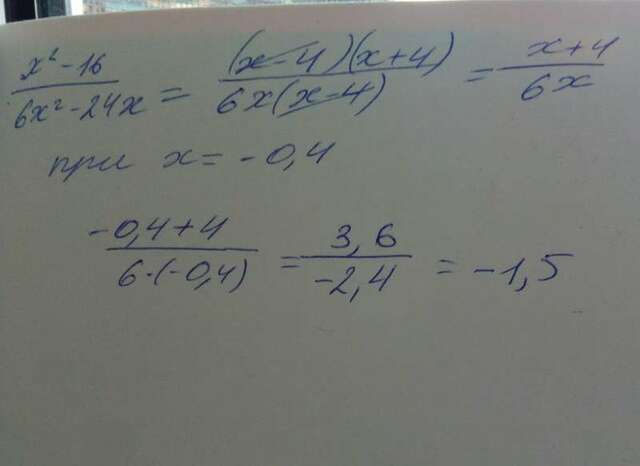 x²-16/6x²-24x = (x-4)(x+4)/6x(x-4) = x+4/6x
при x = -0,4
-0,4+4/6·(-0,4) = 3,6/-2,4 = -1,5